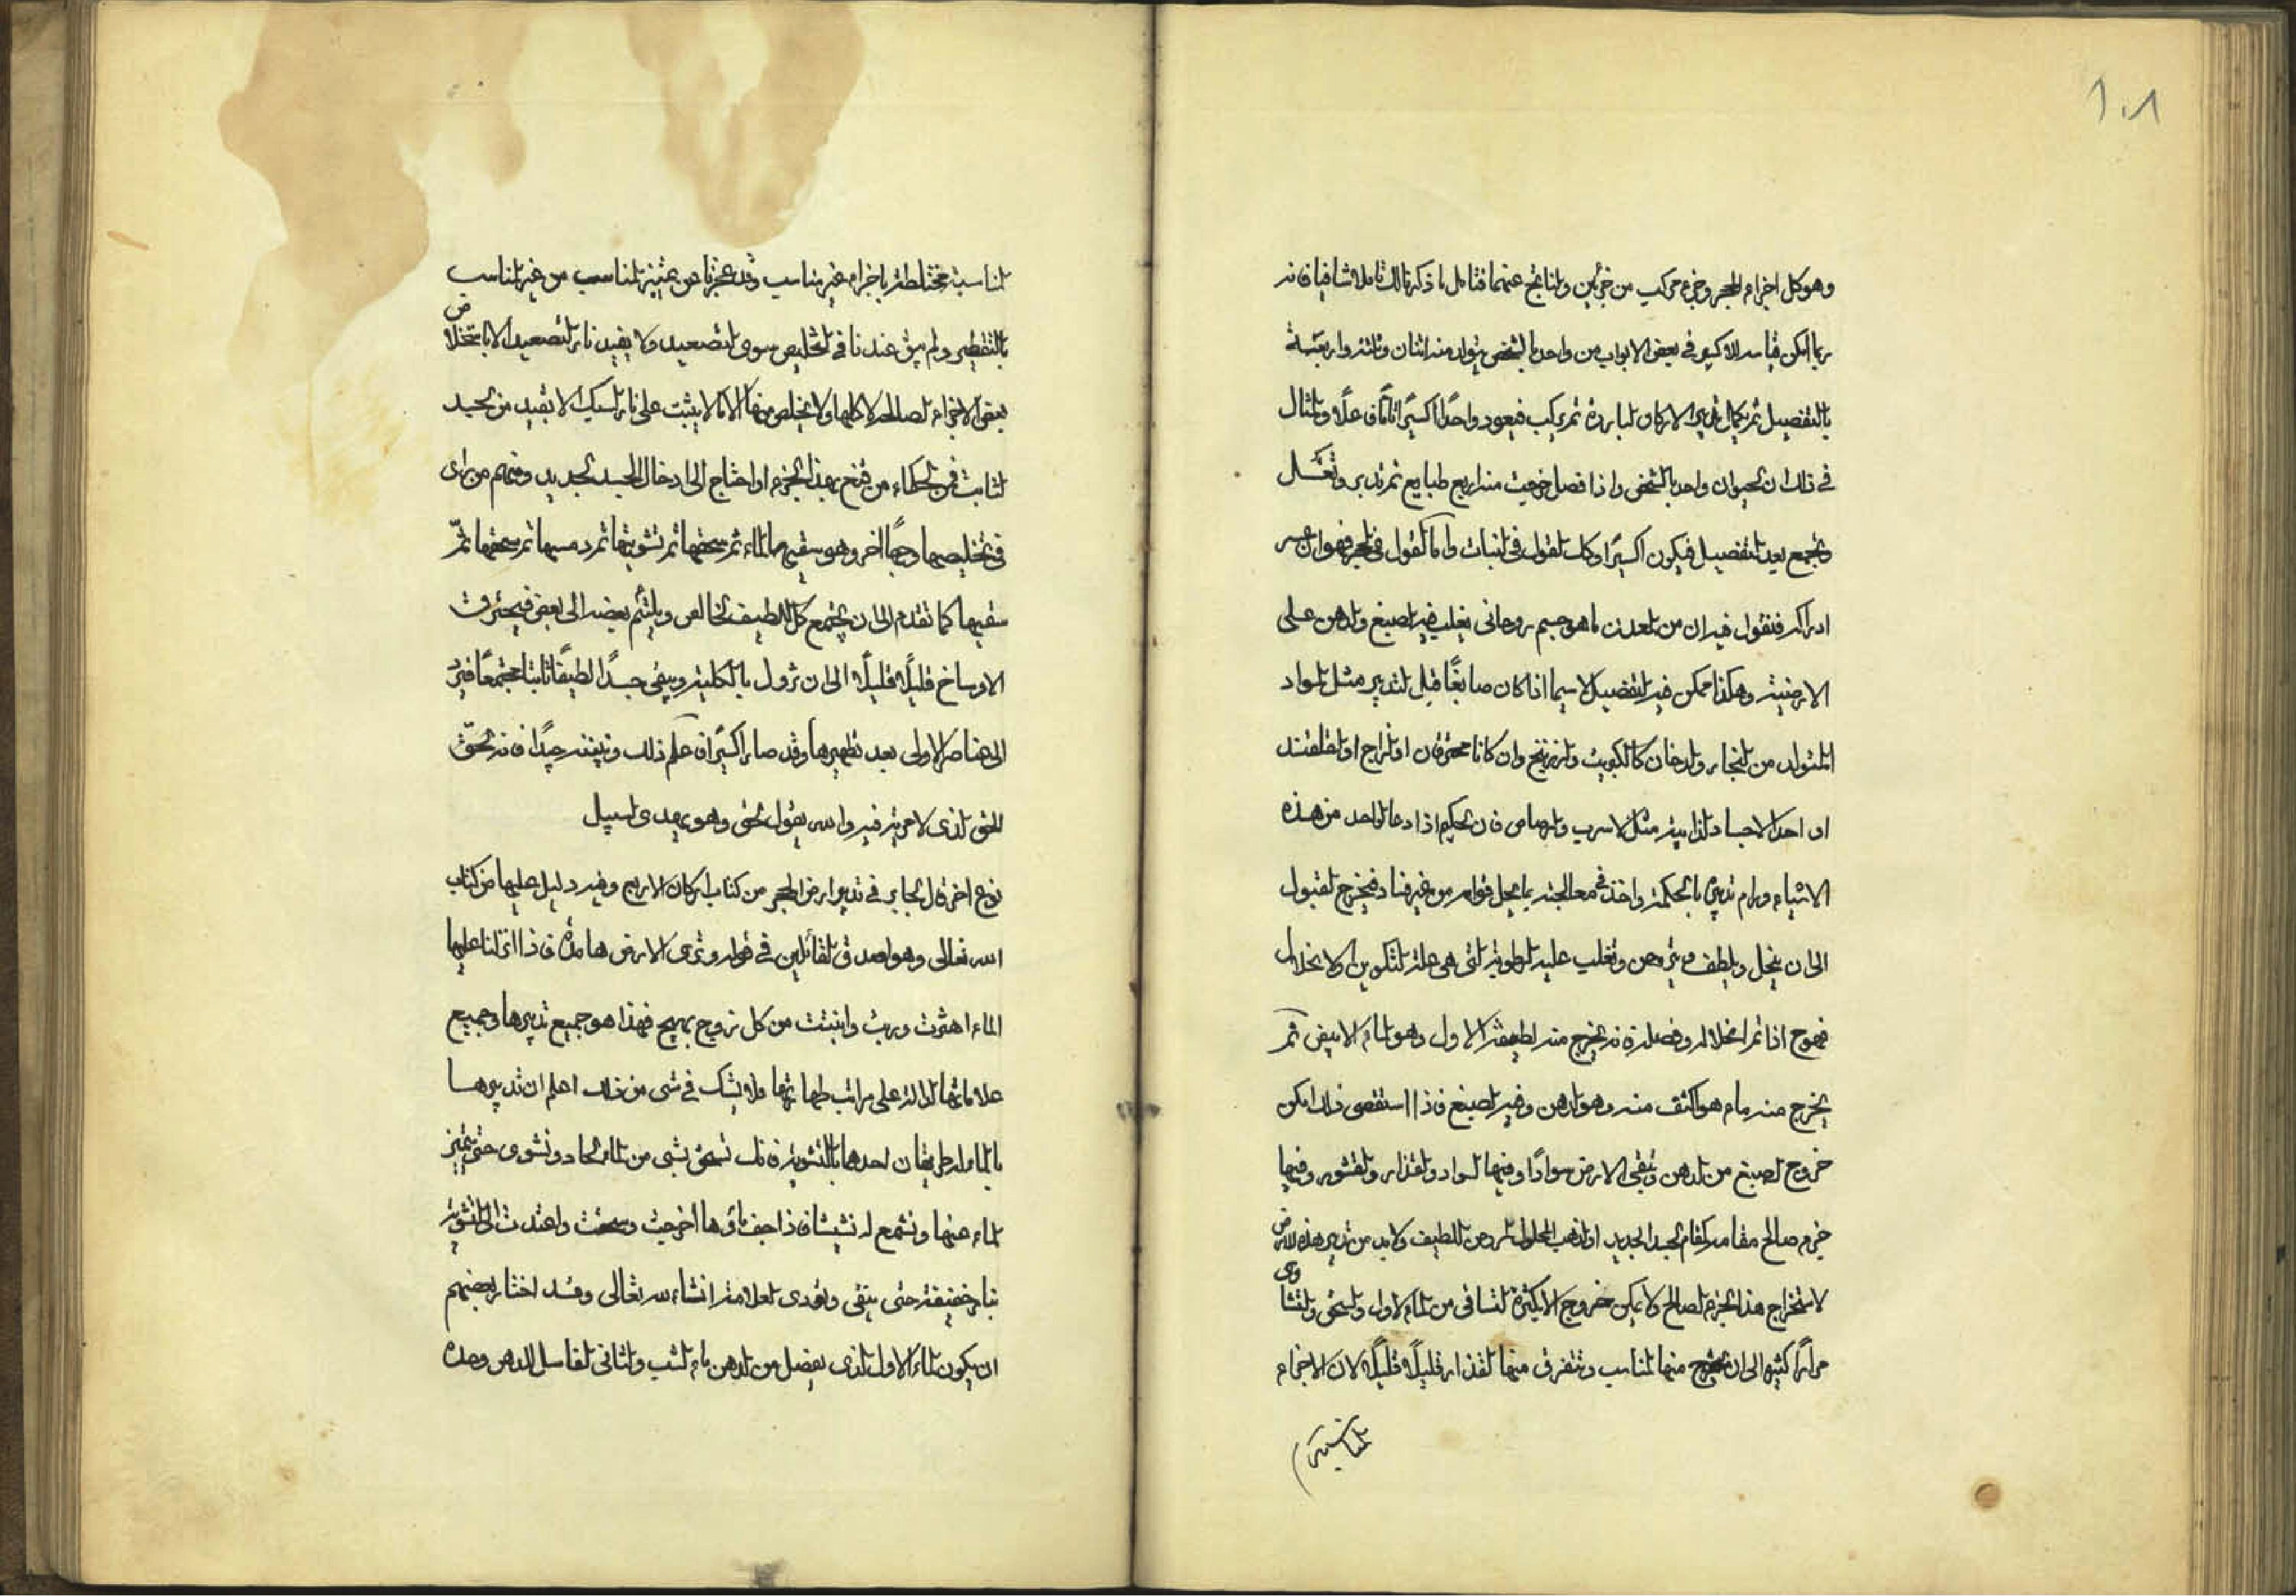 ١٠٨
وهو كل اجزاء الحجر وجزء مركب من جزئين والناتج عنهما فتامل ما ذكرنا لك تاملا شافيا فانه
ربما امكن قياسه للاكسير في بعض الابواب من واحد بالشخص يتولد منه اثنان وثلثة واربعة
بالتفصيل ثم يكمل تدبير الاركان الباردة ثم يركب فيعود واحدًا اكسيرًا تامًا فعلًا والمثال
في ذلك ان الحيوان واحد بالشخص واذا فصل خرجت منه اربع طبايع ثم تدبر وتغسل
وتجمع بعد التفصيل فيكون اكسيرًا وكذلك القول في النبات واما القول في الحجر فهو اعسر
ادراك فنقول فيه ان من المعدن ما هو جسم روحاني يغلب فيه الصبغ والدهن على
الارضية وهكذا ممكن فيه التفصيل لا سيما اذا كان صابغًا قبل التدبير مثل المواد
المتولد من البخار والدخان كالكبريت والزرنيخ وان كانا محترقان او الزاج او القلقند
او احد الاجساد الذايبة مثل الاسرب والرصاص فان الحكيم اذا دعا لواحد من هذه
الاشياء ورام تدبيره بالحكمة واخذ في معالجته بما يحل قوامه من غير فساد فيخرج لقبول
الى ان ينحل ويلطف ويتروحن وتغلب عليه الرطوبة التي هي علة التكوين والانحلال
فهوح اذا تم انحلاله وفصل فانه يخرج منه لطيفة الاول وهو الماء الابيض ثم
يخرج منه ماء هو اكثف منه وهو الدهن وفيه الصبغ فاذا استقصى ذلك امكن
خروج الصبغ من الدهن وتبقى الارض سوادًا وفيها السواد والقذار والقشور وفيها
جزء صالح مقامه كمقام الجسد الجديد او الذهب المحلول للروحن اللطيف ولا بد من تدبير هذه الارض
لاستخراج هذا الجزء الصالح ولا يمكن خروجه الا بكثرة التساقي من الماء الاول والسحق والتشاوى
مرارًا كثيره الى ان يخرج منها المناسب وتتفرق منها القذار قليلًا قليلًا لان الاجزاء
المناسبة
المناسبة مختلطة باجزاء غير مناسب وقد عجزنا عن تمييز المناسب من غير المناسب
بالتقطير ولم يبق عندنا في التخليص سوى التصعيد ولا يفيدنا بالتصعيد الا باستخلاص
بعض الاجزاء الصالحه لا كلها ولا يخلص منها الا ما لا يثبت على نار السبك الا بقيد من الجسد
الثابت فمن الحكماء من قنع بهذا الجزء او احتاج الى ادخال الجسد الجديد ومنهم من راى
في تخليصها وجهًا اخر وهو سقيها الماء ثم سحقها ثم تشويتها ثم دمسها ثم سحقها ثمّ
سقيها كما تقدم الى ان يجتمع كل اللطيف الخالص ويلتئم بعضه الى بعض فيحترق
الاوساخ قليلًا قليلًا الى ان تزول بالكلية ويبقى جسدًا لطيفًا ثابتًا مجتمعًا فيرد
الى العناصر الاولى بعد تطهيرها وقد صار اكسيرًا فاعلم ذلك وتيقنه جيدًا فانه الحقّ
الحق الذي لا مرية فيه والله يقول الحق وهو يهدي السبيل
نوع اخر قال الجابر في تدبير ارض الحجر من كتاب اركان الاربع وفيه دليل عليها من كتاب
الله تعالى وهو اصدق القائلين في قوله وترى الارض هامدة فاذا انزلنا عليها
الماء اهتزت وربت وانبتت من كل زوج بهيج فهذا هو جميع تدبيرها وجميع
علاماتها الدالة على مراتب طهارتها ولا يشك في شى من ذلك اعلم ان تدبيرها
بالماء له طريقان احدهما بالتشوية فذلك تسحق بشى من الماء الحاد وتشوى حتى يتميز
الماء عنها وتسمع له نشيشا فاذا جف ماؤها اخرجت وسحقت واعيدت الى التشوية
بنار خفيفة حتى ينقى وتؤدى العلامة انشاء الله تعالى وقد اختار بعضهم
ان يكون الماء الاول الذي يفصل من الدهن ماء الشب والثاني الغاسل للدهن وحده